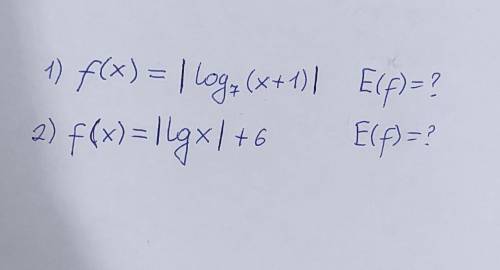 1) f(x) = |log₇(x+1)| E(f)=?
2) f(x)=|lgx|+6 E(f)=?